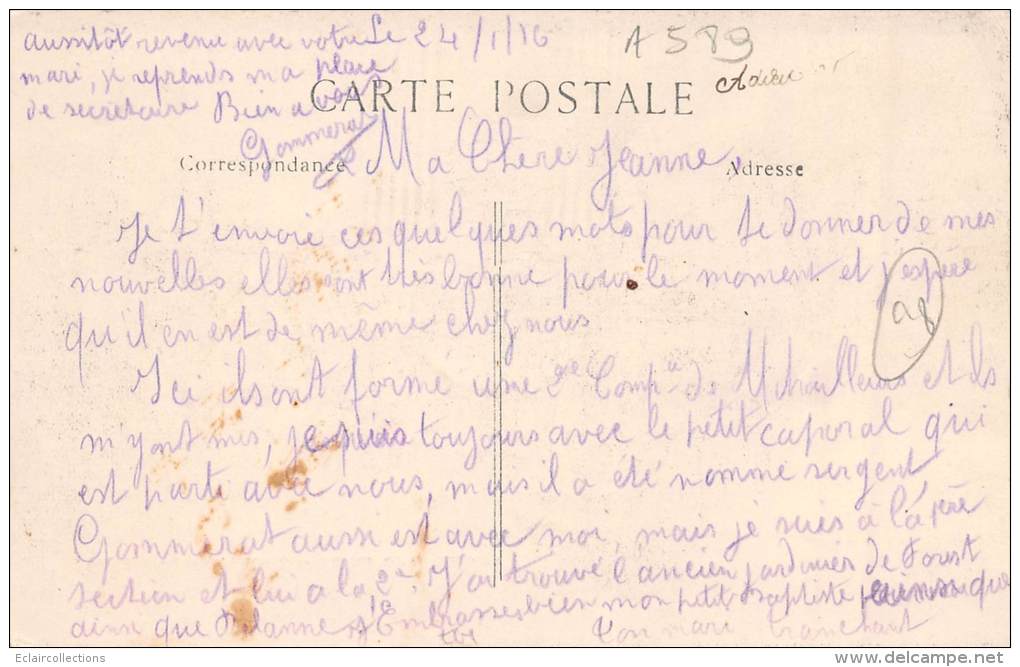 aussitôt revenu avec votre
mari, je reprends ma place
de secretaire Bien a vous
Gommerat
Le 24/1/16
A 589
CARTE POSTALE
Correspondance
Adresse
Ma Chère Jeanne,
Je t'envoie ces quelques mots pour te donner de mes
nouvelles elles sont très bonne pour le moment et j'espère
qu'il en est de même chez nous
98
Ici ils ont formé une 2me Comp de Mitrailleurs et ils
m'y ont mis, je suis toujours avec le petit caporal qui
est parti avec nous, mais il a été nommé sergent
Gommerat aussi est avec moi, mais je suis à la 1ère
section et lui a la 2e J'ai trouvé l'ancien jardinier de Forest
ainsi que Delanne Embrasses bien mon petit Baptiste ainsi que
Ton mari Tranchant
Eclaircollections
delcampe.net